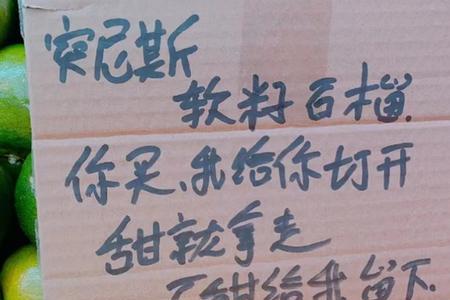 突尼斯
软籽石榴.
你买、我给你打开
甜就拿走
不甜给我留下